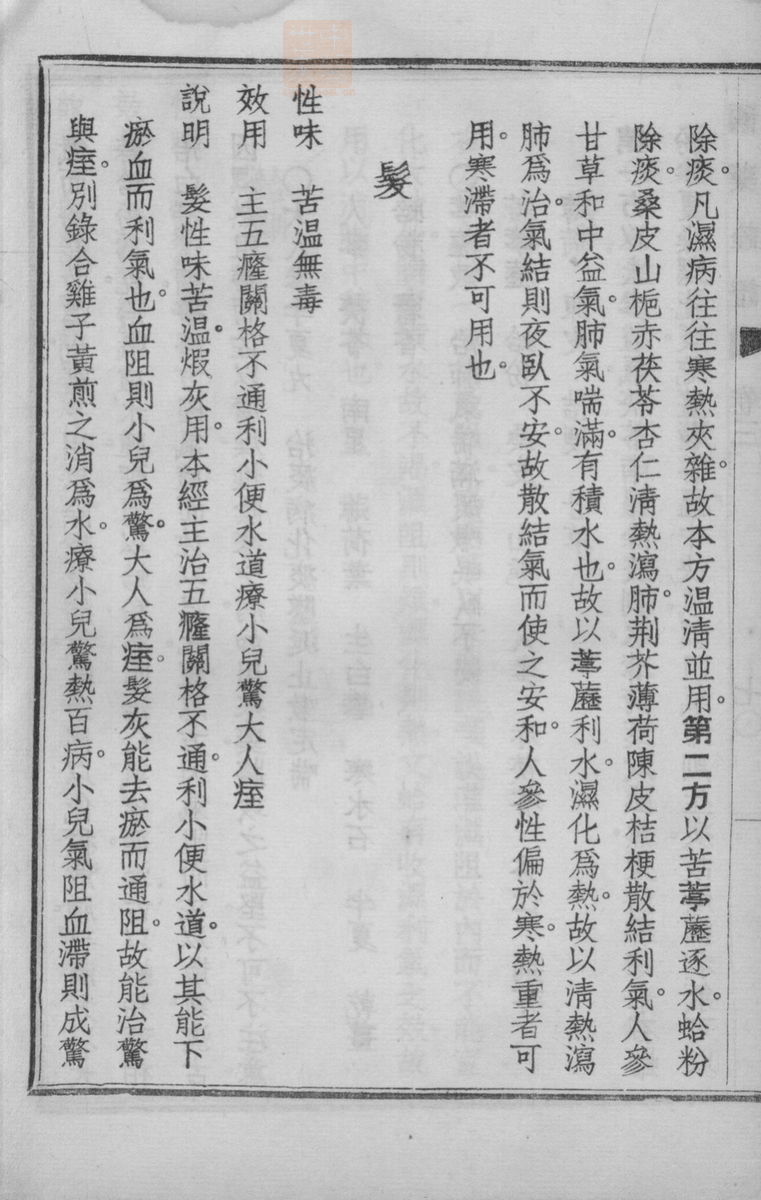 除痰。凡濕病往往寒熱夾雜。故本方溫淸並用。第二方以苦葶藶逐水。蛤粉
除痰。桑皮山梔赤茯苓杏仁淸熱瀉肺。荆芥薄荷陳皮桔梗散結利氣。人參
甘草和中益氣。肺氣喘滿。有積水也。故以葶藶利水。濕化爲熱。故以淸熱瀉
肺爲治。氣結則夜臥不安。故散結氣而使之安和。人參性偏於寒。熱重者可
用。寒滯者不可用也。
髮
性味　苦溫無毒
效用　主五癃關格不通利小便水道療小兒驚大人痓
說明　髮性味苦溫。煆灰用。本經主治五癃關格不通。利小便水道。以其能下
瘀血而利氣也。血阻則小兒爲驚。大人爲痓。髮灰能去瘀而通阻。故能治驚
與痓。別錄合雞子黃煎之消爲水。療小兒驚熱百病。小兒氣阻血滯則成驚